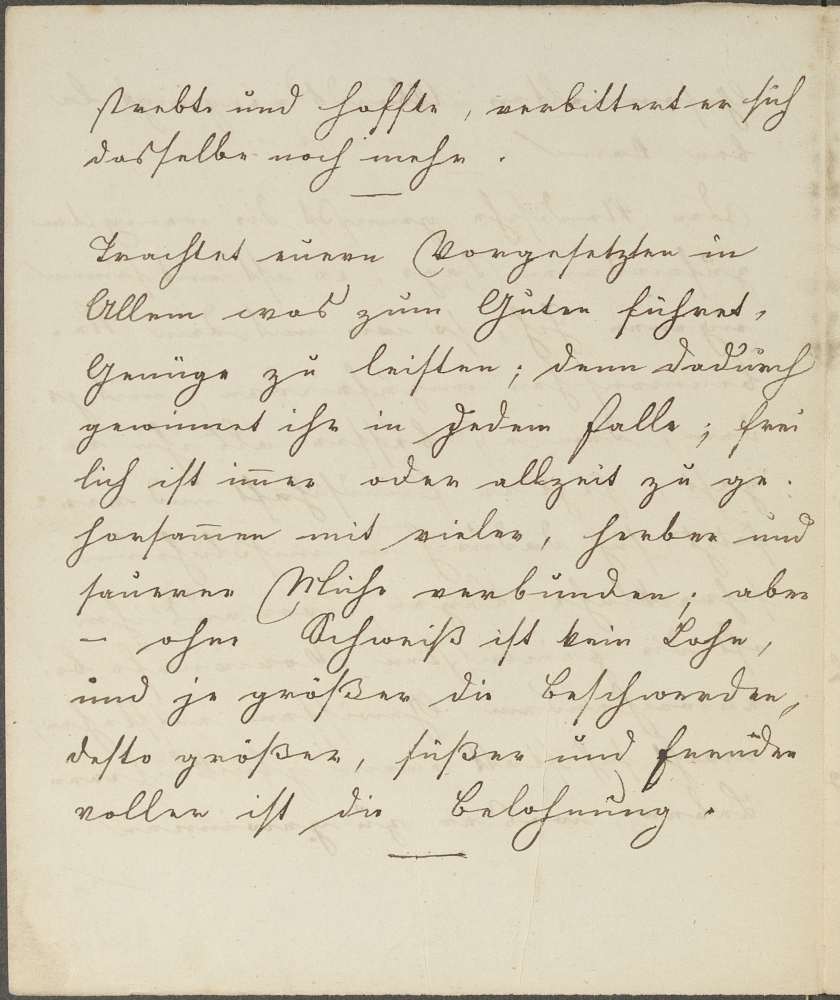 strebte und hoffte, verbittert er sich
dasselbe noch mehr.
Trachtet euern Vorgesetzten in
Allem was zum Guten führet,
Genüge zu leisten; denn dadurch
gewinnet ihr in jedem Falle; frei
lich ist im̅er oder allzeit zu ge-
horsam̅en mit vieler, herber und
saurer Mühe verbunden; aber
– ohne Schweiß ist kein Lohn,
und je größer die Beschwerden,
desto größer, süßer und freuden
voller ist die Belohnung.